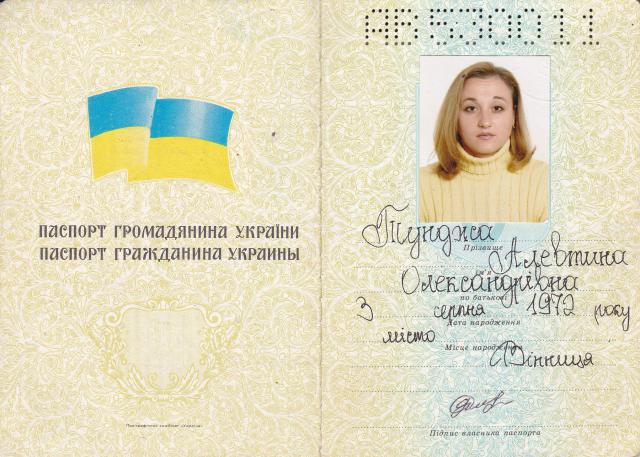 ПАСПОРТ ГРОМАДЯНИНА УКРАЇНИ
ПАСПОРТ ГРАЖДАНИНА УКРАИНЫ
АВ 530011
Тунджа
Прізвище
Алевтина
ім'я
Олександрівна
по батькові
3 серпня 1972 року
Дата народження
місто
Місце народження
Вінниця
Підпис власника паспорта